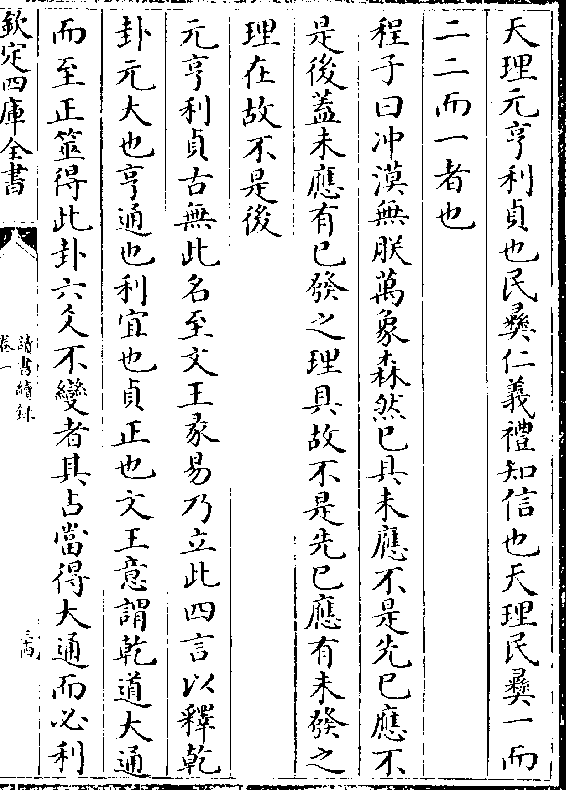 天理元亨利貞也民彞仁義禮知信也天理民彞一而
二二而一者也
程子曰冲漠無朕萬象森然已具未應不是先已應不
是後蓋未應有已發之理具故不是先已應有未發之
理在故不是後
元亨利貞古無此名至文王彖易乃立此四言以釋乾
卦元大也亨通也利宜也貞正也文王意謂乾道大通
而至正筮得此卦六爻不變者其占當得大通而必利
欽定四庫全書
讀書續録
卷一